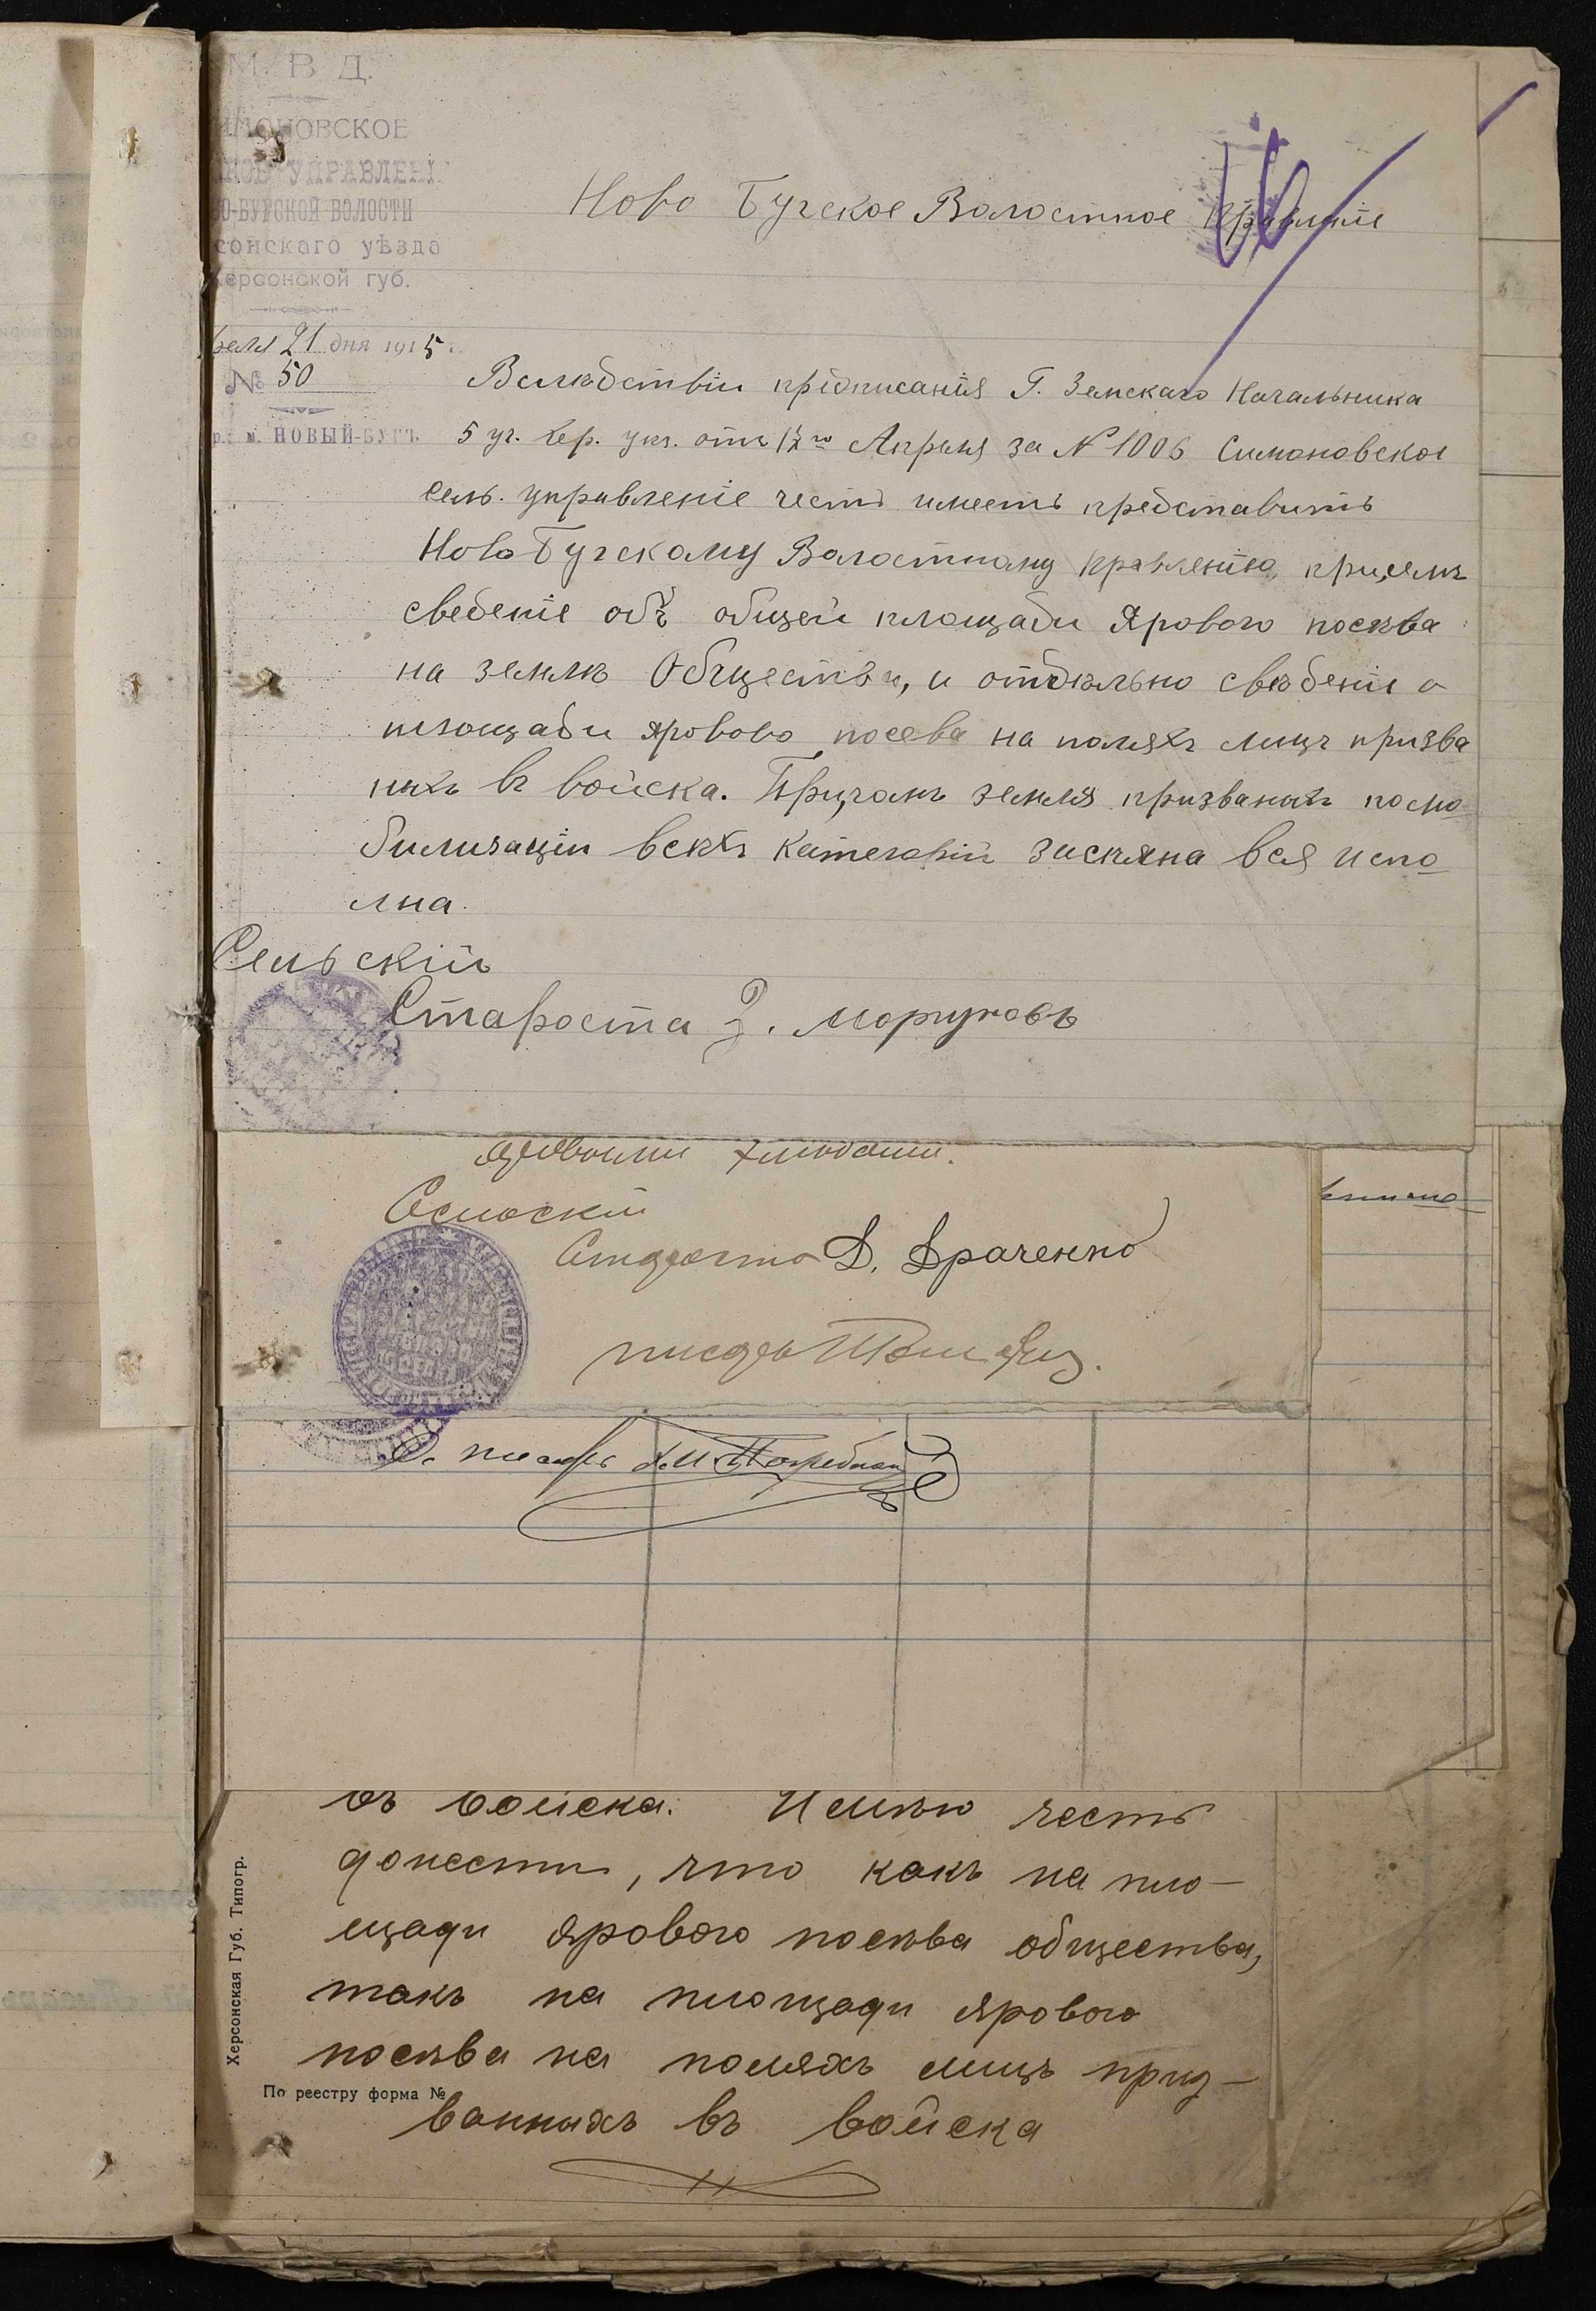 М. В. Д.
ИМОНОВСКОЕ
УПРАВЛЕНІ
О-БУГСКОЙ ВОЛОСТИ
сонскаго уѣзда
Херсонской губ.
реля 21 дня 1915 г.
№ 50
м. НОВЫЙ-БУГЪ
Ново Бугское Волостное Правленіе
Вслѣдствіи предписанія Г. Земскаго Начальника
5 уч. Хер. уѣз. отъ Апрѣля за № 1006 Симоновское
Сель. управленіе честь имеетъ представить
Ново Бугскому Волостному правленію, присемъ
сведеніе объ общей площади Ярового посѣва
на землѣ Общества, и отдѣльно свѣденіе о
площади ярового посева на поляхъ лицъ призва
ныхъ въ войска. Причомъ земля призваныхъ по мо
билизаціи всѣхъ Категорій засѣяна вся испо
лна.
Сельскій
Староста З. Моргуновъ
Сельскій
Староста Д. Драченко
писарь
писарь
въ войска. Имѣю честь
донести, что какъ на пло-
щади ярового посѣва общества,
такъ на площади ярового
посѣва на поляхъ лицъ приз-
ванныхъ въ войска
Херсонская Губ. Типогр.
По реестру форма №